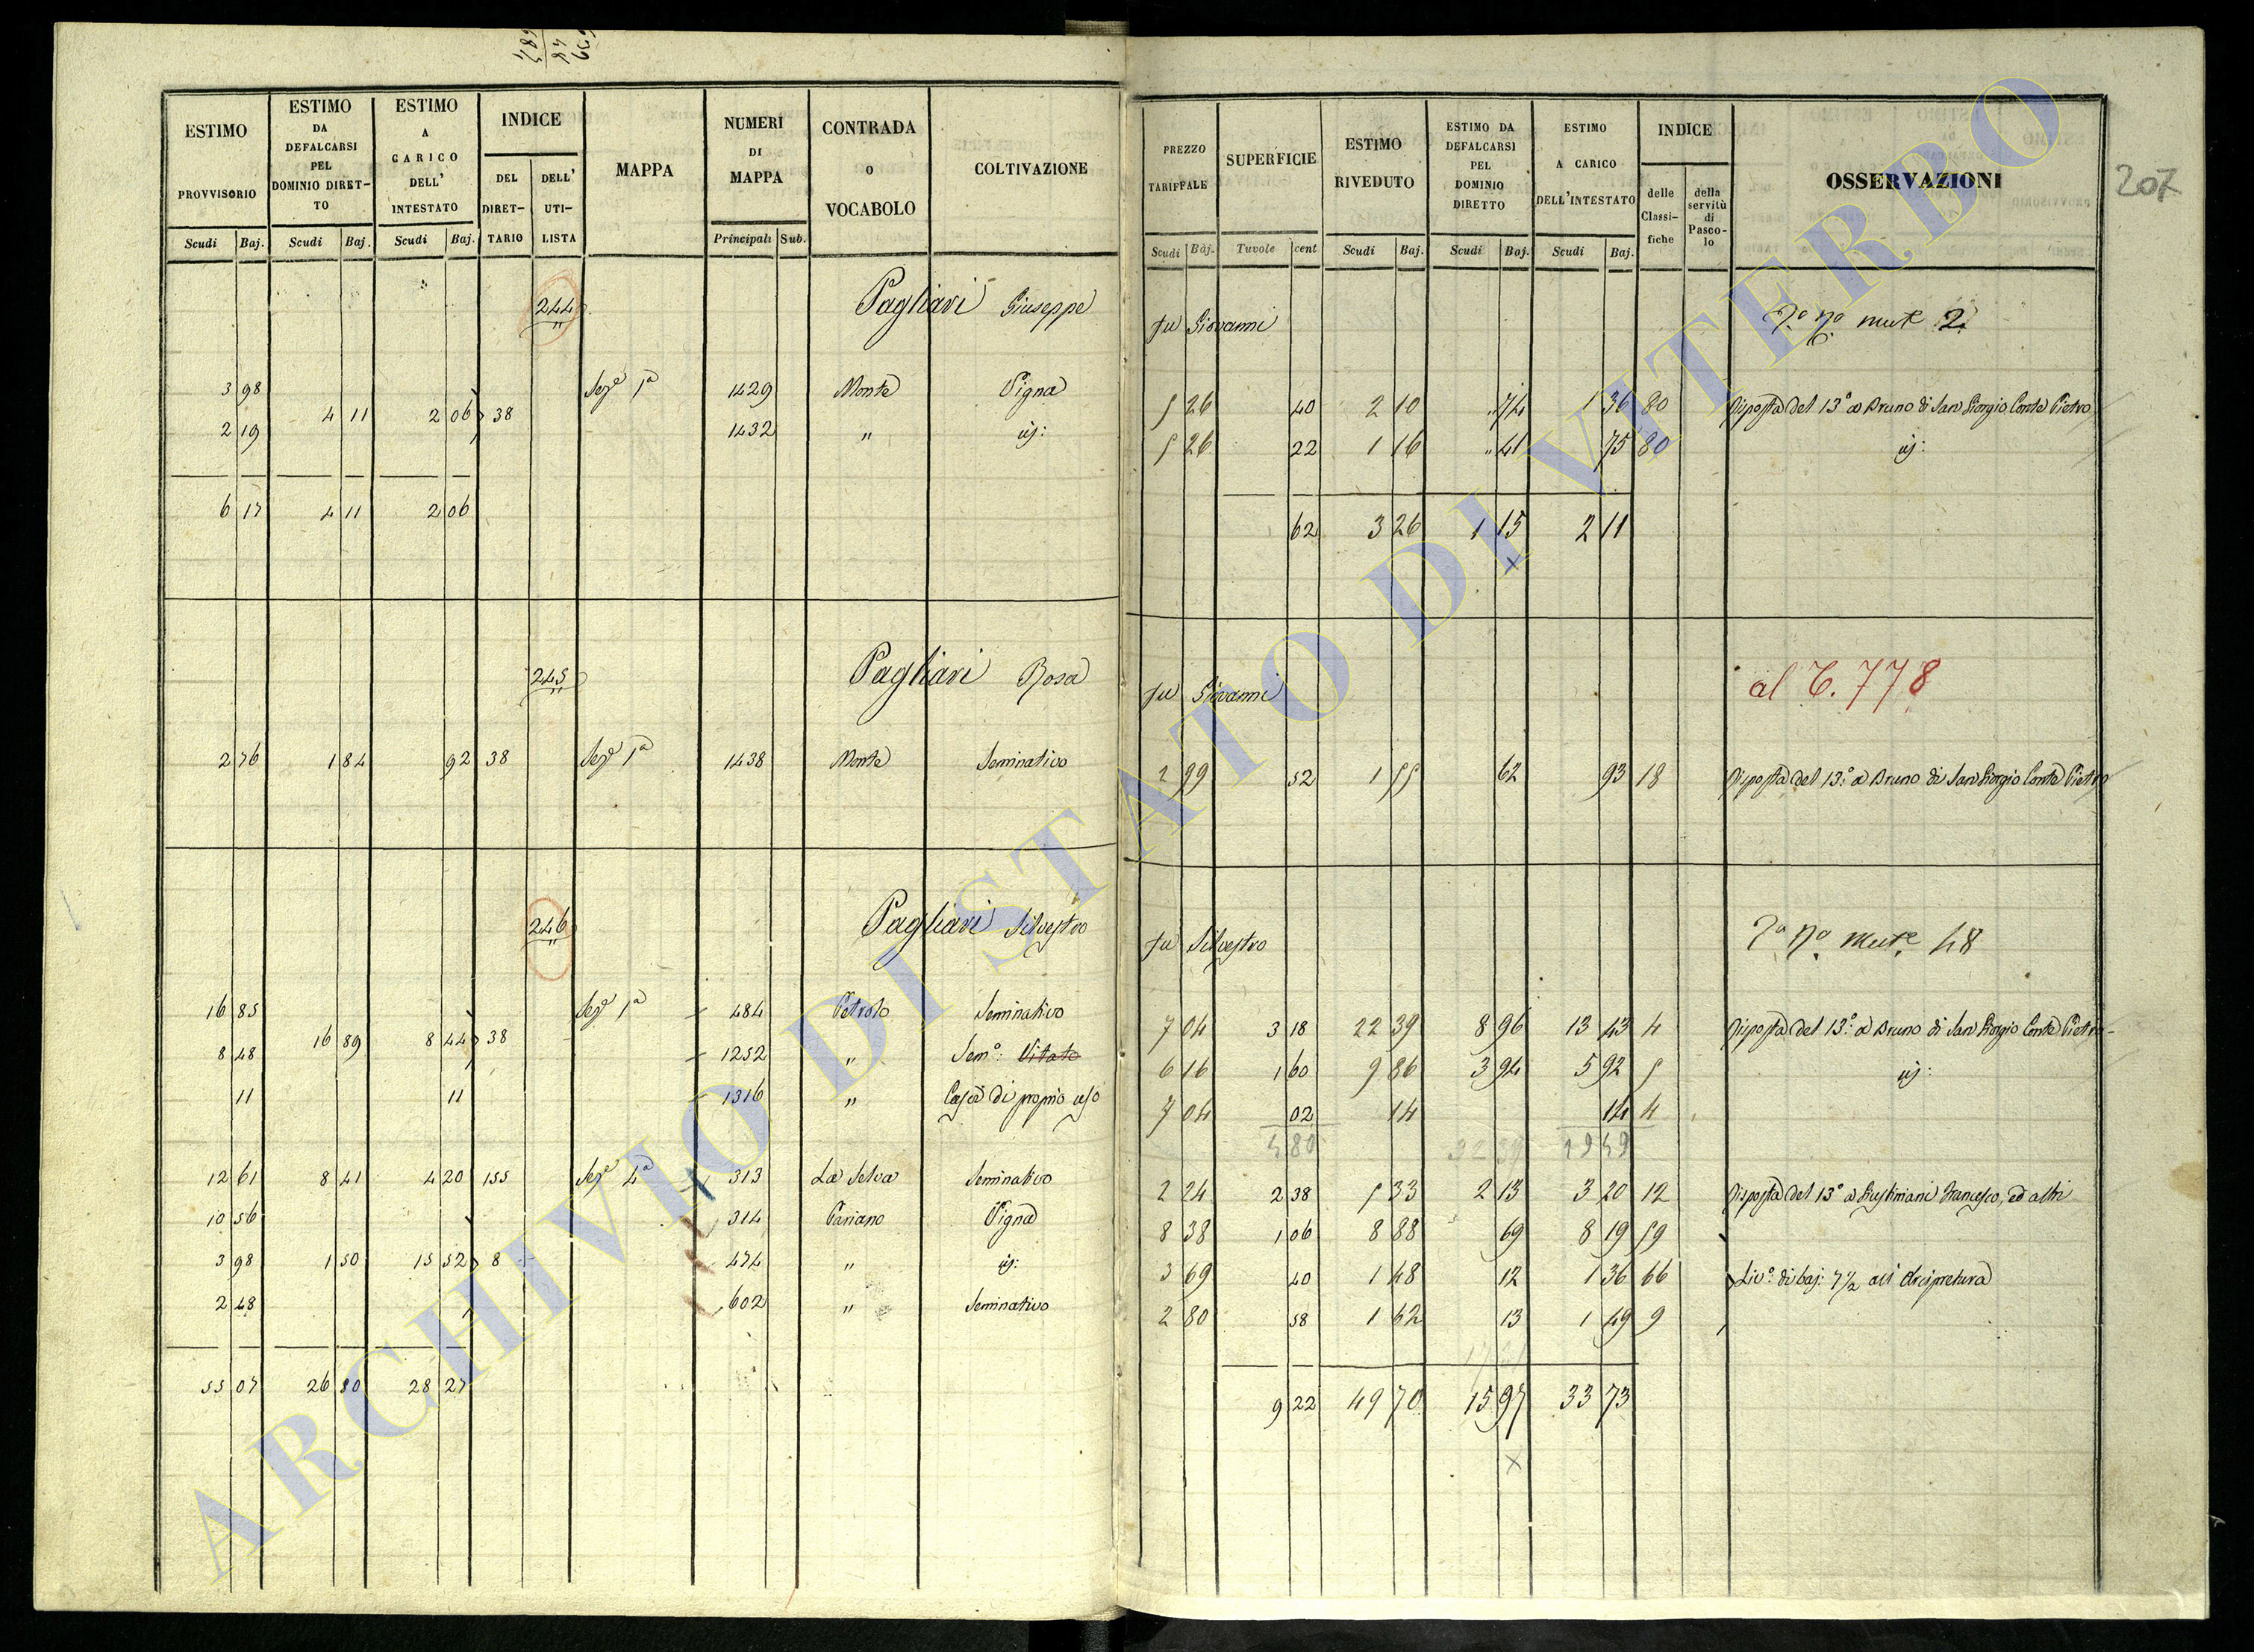 ESTIMO PROVVISORIO
ESTIMO DA DEFALCARSI PEL DOMINIO DIRETTO
ESTIMO A CARICO DELL' INTESTATO
INDICE
DEL DIRETTARIO
DELL' UTILISTA
MAPPA
NUMERI DI MAPPA
CONTRADA O VOCABOLO
COLTIVAZIONE
PREZZO TARIFFALE
SUPERFICIE
ESTIMO RIVEDUTO
ESTIMO DA DEFALCARSI PEL DOMINIO DIRETTO
ESTIMO A CARICO DELL'INTESTATO
INDICE
delle Classifiche
della servitù di Pascolo
OSSERVAZIONI
207
Scudi Baj. Scudi Baj. Scudi Baj. Principali Sub. Scudi Baj. Tavole cent Scudi Baj. Scudi Baj. Scudi Baj.
244 Pagliari Giuseppe fu Giovanni 2
3 98 Sezᵉ 1ª 1429 Monte Vigna 5 26 40 2 10 " 74 1 36 80 Risposta del 13° a Bruno di San Giorgio Conte Pietro
4 11 2 06 38
2 19 1432 " id: 5 26 22 1 16 " 41 75 80 id:
6 17 4 11 2 06 62 3 26 1 15 2 11
245 Pagliari Rosa fu Giovanni al C. 778
2 76 1 84 92 38 Sezᵉ 1ª 1438 Monte Seminativo 2 99 52 1 55 62 93 18 Risposta del 13° a Bruno di San Giorgio Conte Pietro
246 Pagliari Silvestro fu Silvestro 48
16 85 Sezᵉ 1ª 484 Petrolo Seminativo 7 04 3 18 22 39 8 96 13 43 4 Risposta del 13° a Bruno di San Giorgio Conte Pietro
16 89 8 44 38
8 48 1252 " Semᵒ: Vitato 6 16 1 60 9 86 3 94 5 92 5 id:
11 11 1316 " Casa di proprio uso 7 04 02 14 14 4
4 80 32 39 19 49
12 61 8 41 4 20 155 Sezᵉ 4ª 313 La Selva Seminativo 2 24 2 38 5 33 2 13 3 20 12 Risposta del 13° a Giustiniani Francesco, ed altri
10 56 314 Pariano Vigna 8 38 1 06 8 88 69 8 19 59
3 98 1 50 15 52 8 474 " id: 3 69 40 1 48 12 1 36 66 Livᵒ: di baj: 7½ all' Arcipretura
2 48 602 " Seminativo 2 80 58 1 62 13 1 49 9
55 07 26 80 28 27 9 22 49 70 15 97 33 73
ARCHIVIO DI STATO DI VITERBO